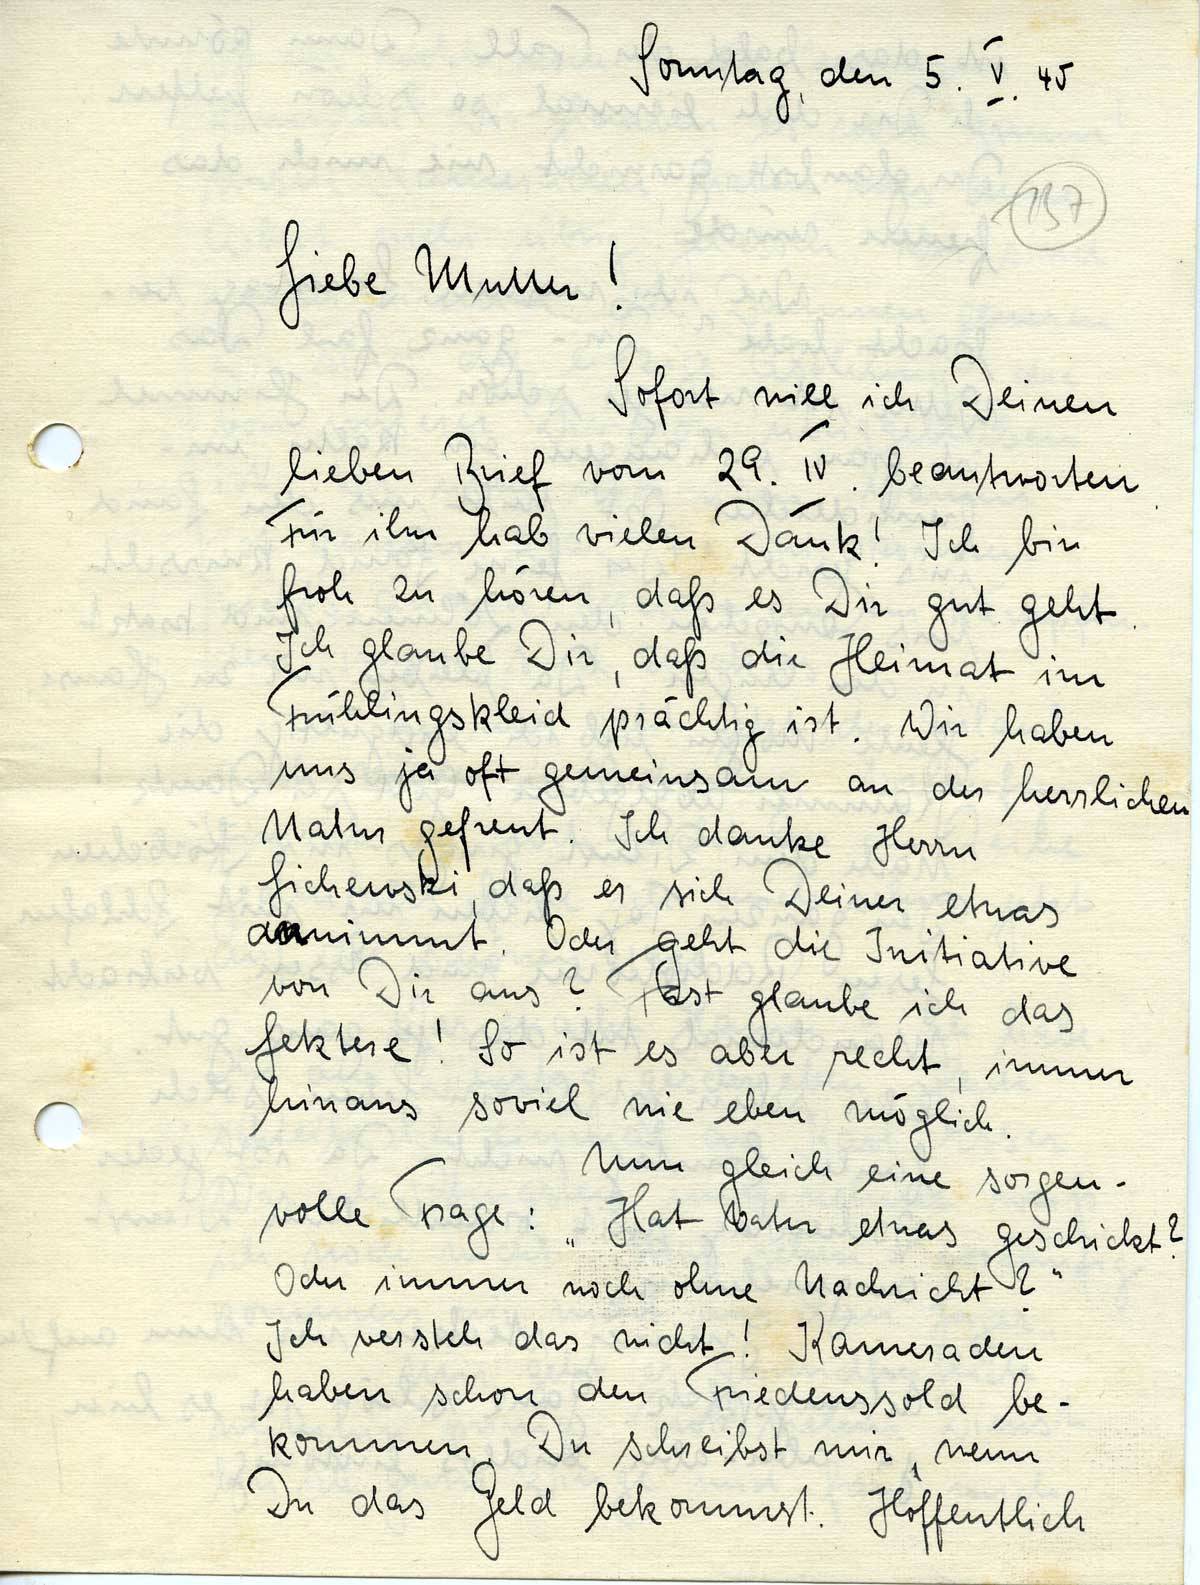 Sonntag, den 5. V. 45
137
Liebe Mutter!
Sofort will ich Deinen
lieben Brief vom 29. IV. beantworten
Für ihn hab vielen Dank! Ich bin
froh zu hören, daß es Dir gut geht.
Ich glaube Dir, daß die Heimat im
Frühlingskleid prächtig ist. Wir haben
uns ja oft gemeinsam an der herrlichen
Natur gefreut. Ich danke Herrn
Lichewski, daß er sich Deiner etwas
annimmt. Oder geht die Initiative
von Dir aus? Fast glaube ich das
Letztere! So ist es aber recht, immer
hinaus soviel wie eben möglich.
Nun gleich eine sorgen-
volle Frage: „Hat Vater etwas geschickt?
Oder immer noch ohne Nachricht?“
Ich versteh das nicht! Kameraden
haben schon den Friedenssold be-
kommen. Du schreibst mir, wenn
Du das Geld bekommst. Hoffentlich